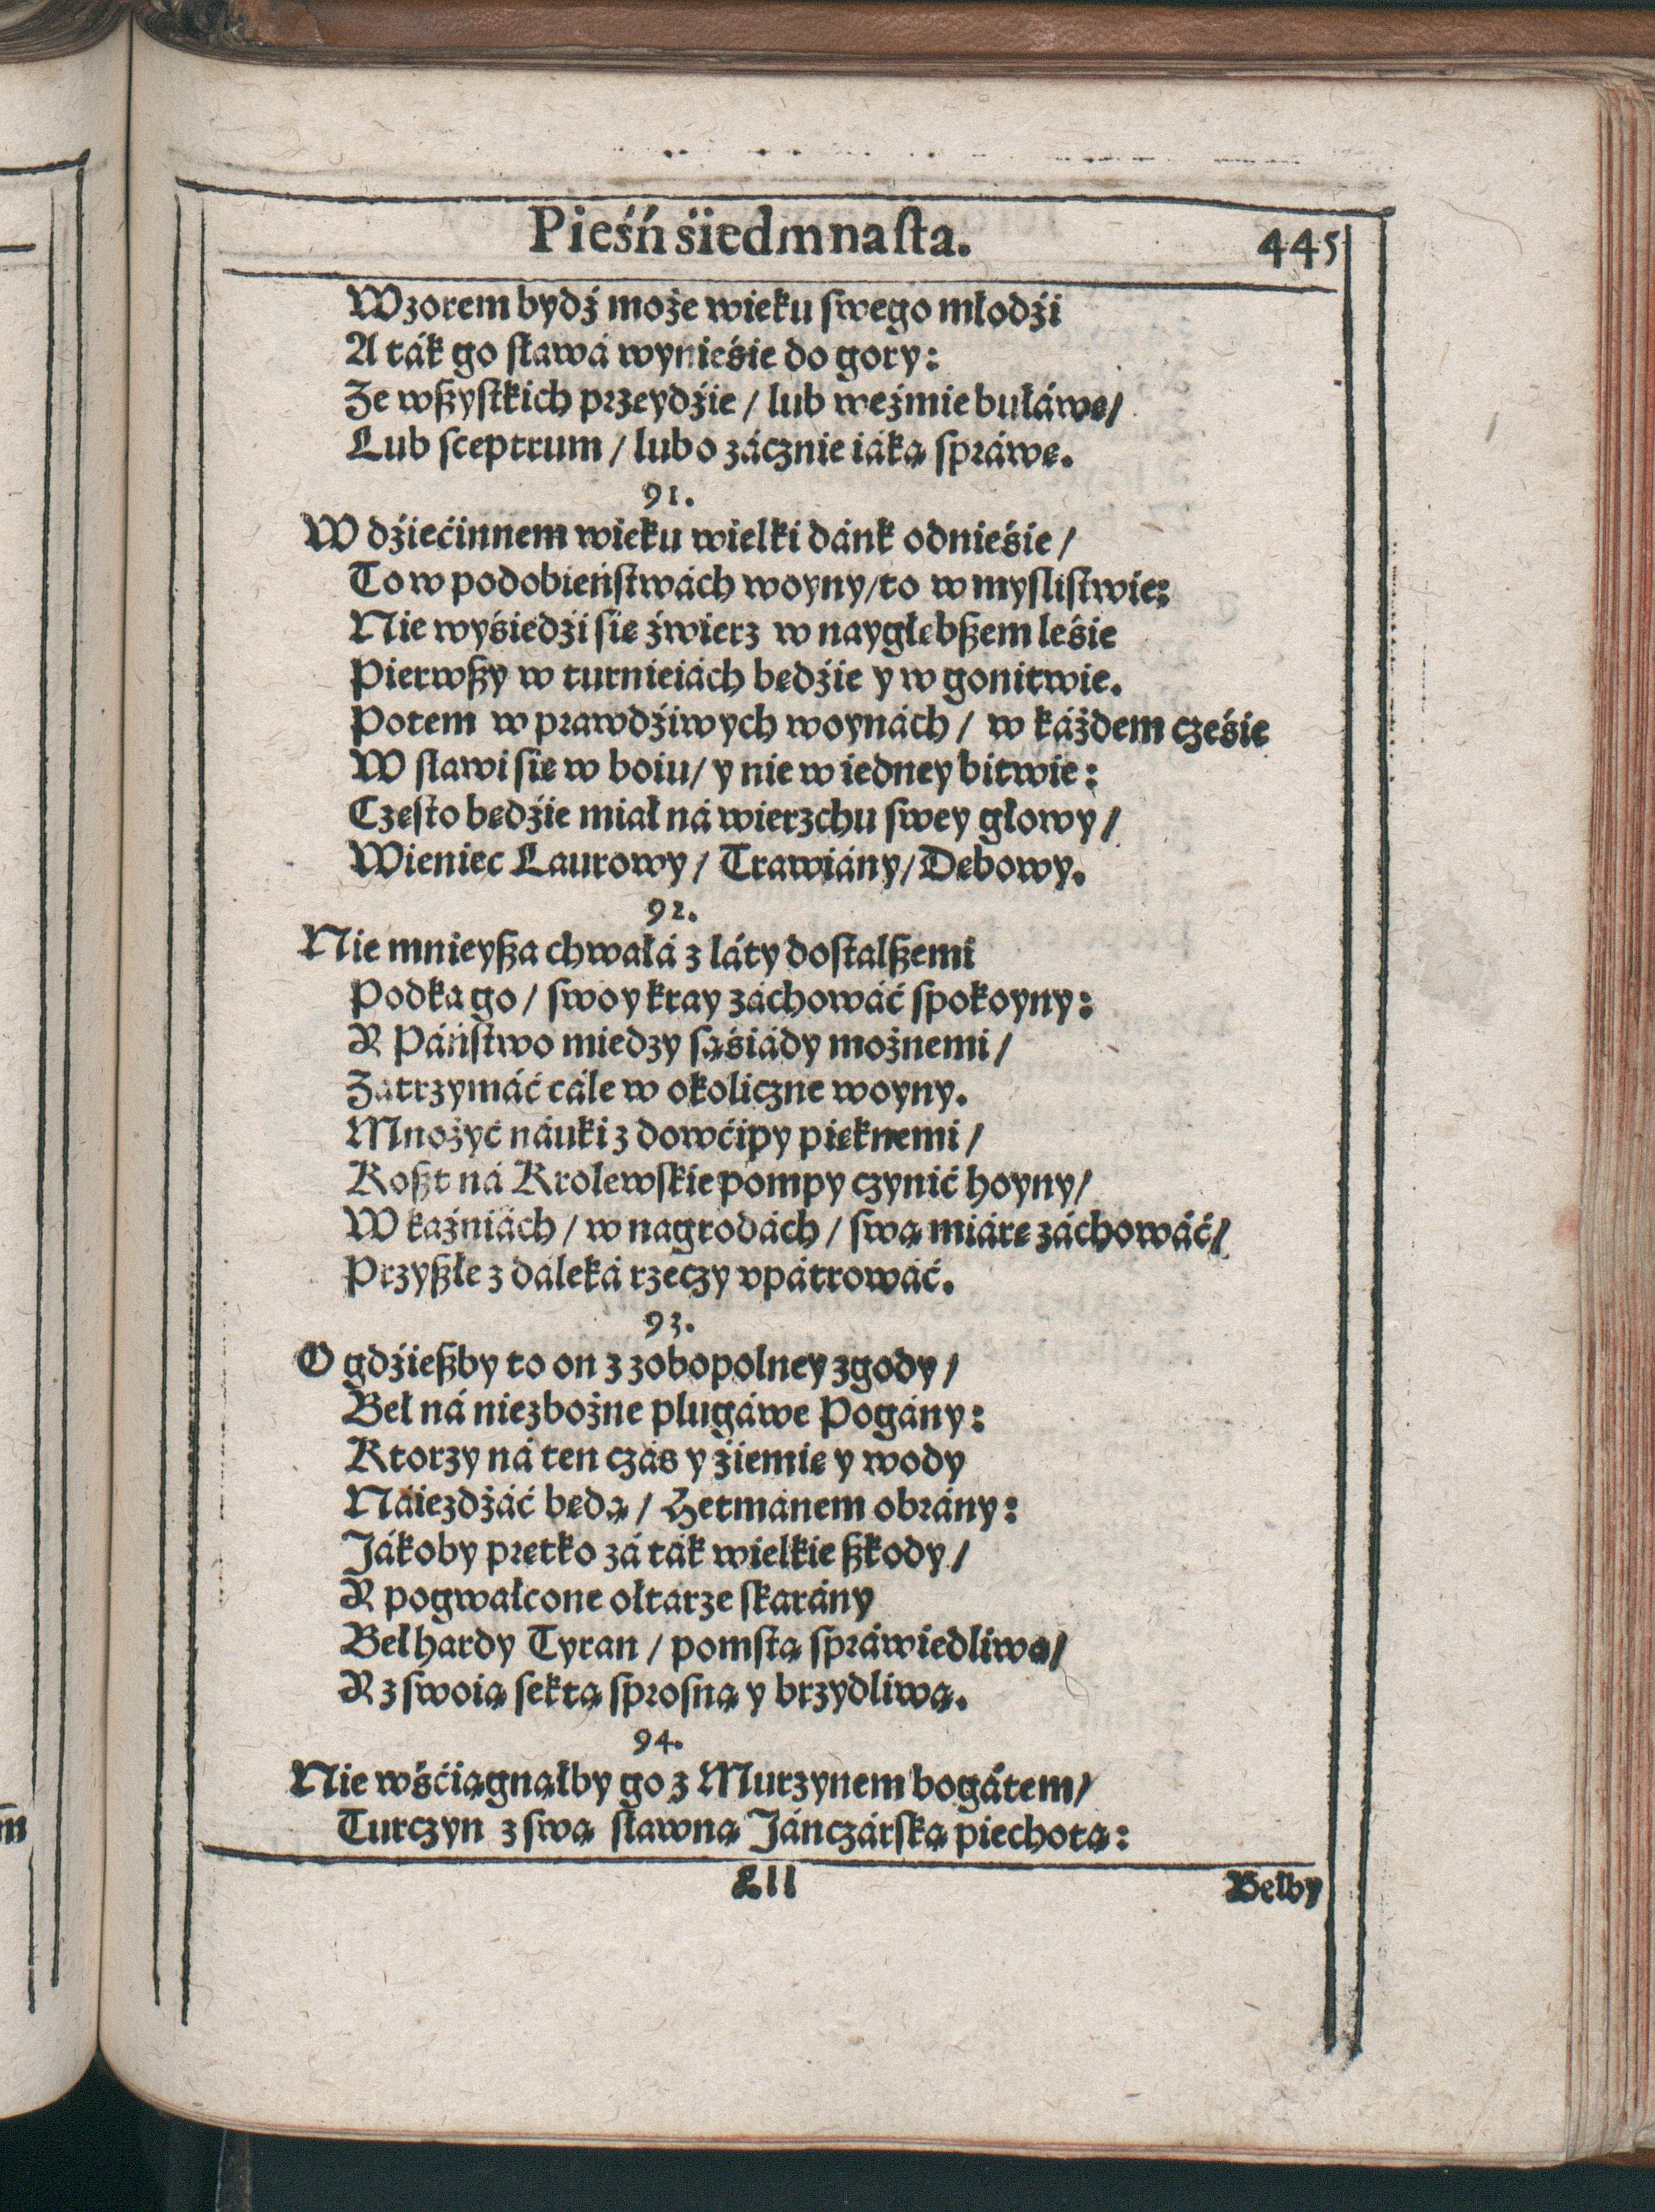 Pieśń śiedmnaſta. 445
Wzorem bydź może wieku ſwego młodźi
A ták go ſławá wynieśie do gory:
Że wßyſtkich przeydźie / lub weźmie buławę/
Lub ſceptrum / lubo zácznie iáką ſpráwę.
91.
W dźiećinnem wieku wielki dánk odnieśie /
To w podobieńſtwách woyny/to w myſliſtwie:
Nie wyśiedźi ſię źwierz w naygłębßem leśie
Pierwßy w turnieiách będźie y w gonitwie.
Potem w prawdźiwych woynách / w káżdem cześie
W ſławi ſię w boiu/ y nie w iedney bitwie:
Często będźie miał ná wierzchu ſwey głowy/
Wieniec Laurowy/ Trawiány/Dębowy.
92.
Nie mnieyßa chwałá z láty doſtalßemi
Podka go/ ſwoy kray záchowáć ſpokoyny:
Y Páńſtwo miedzy ſąśiády możnemi/
Zatrzymáć cále w okoliczne woyny.
Mnożyć náuki z dowćipy pięknemi/
Koßt ná Krolewſkie pompy czynić hoyny/
W kaźniách / w nagrodách / ſwą miárę záchowáć/
Przyßłe z daleká rzeczy vpátrowáć.
93.
O gdźießby to on z zobopolney zgody /
Beł ná niezbożne plugáwe Pogány:
Ktorzy ná ten czás y źiemię y wody
Náiezdżáć będą / Hetmánem obrány:
Jákoby prętko zá ták wielkie ßkody/
Y pogwałcone ołtarze ſkarány
Beł hardy Tyran / pomſtą ſpráwiedliwą/
Y z ſwoią ſektą ſprosną y brzydliwą.
94.
Nie wśćiągnąłby go z Murzynem bogátem/
Turczyn z ſwą ſławną Jánczárſką piechotą:
Lll Bełby